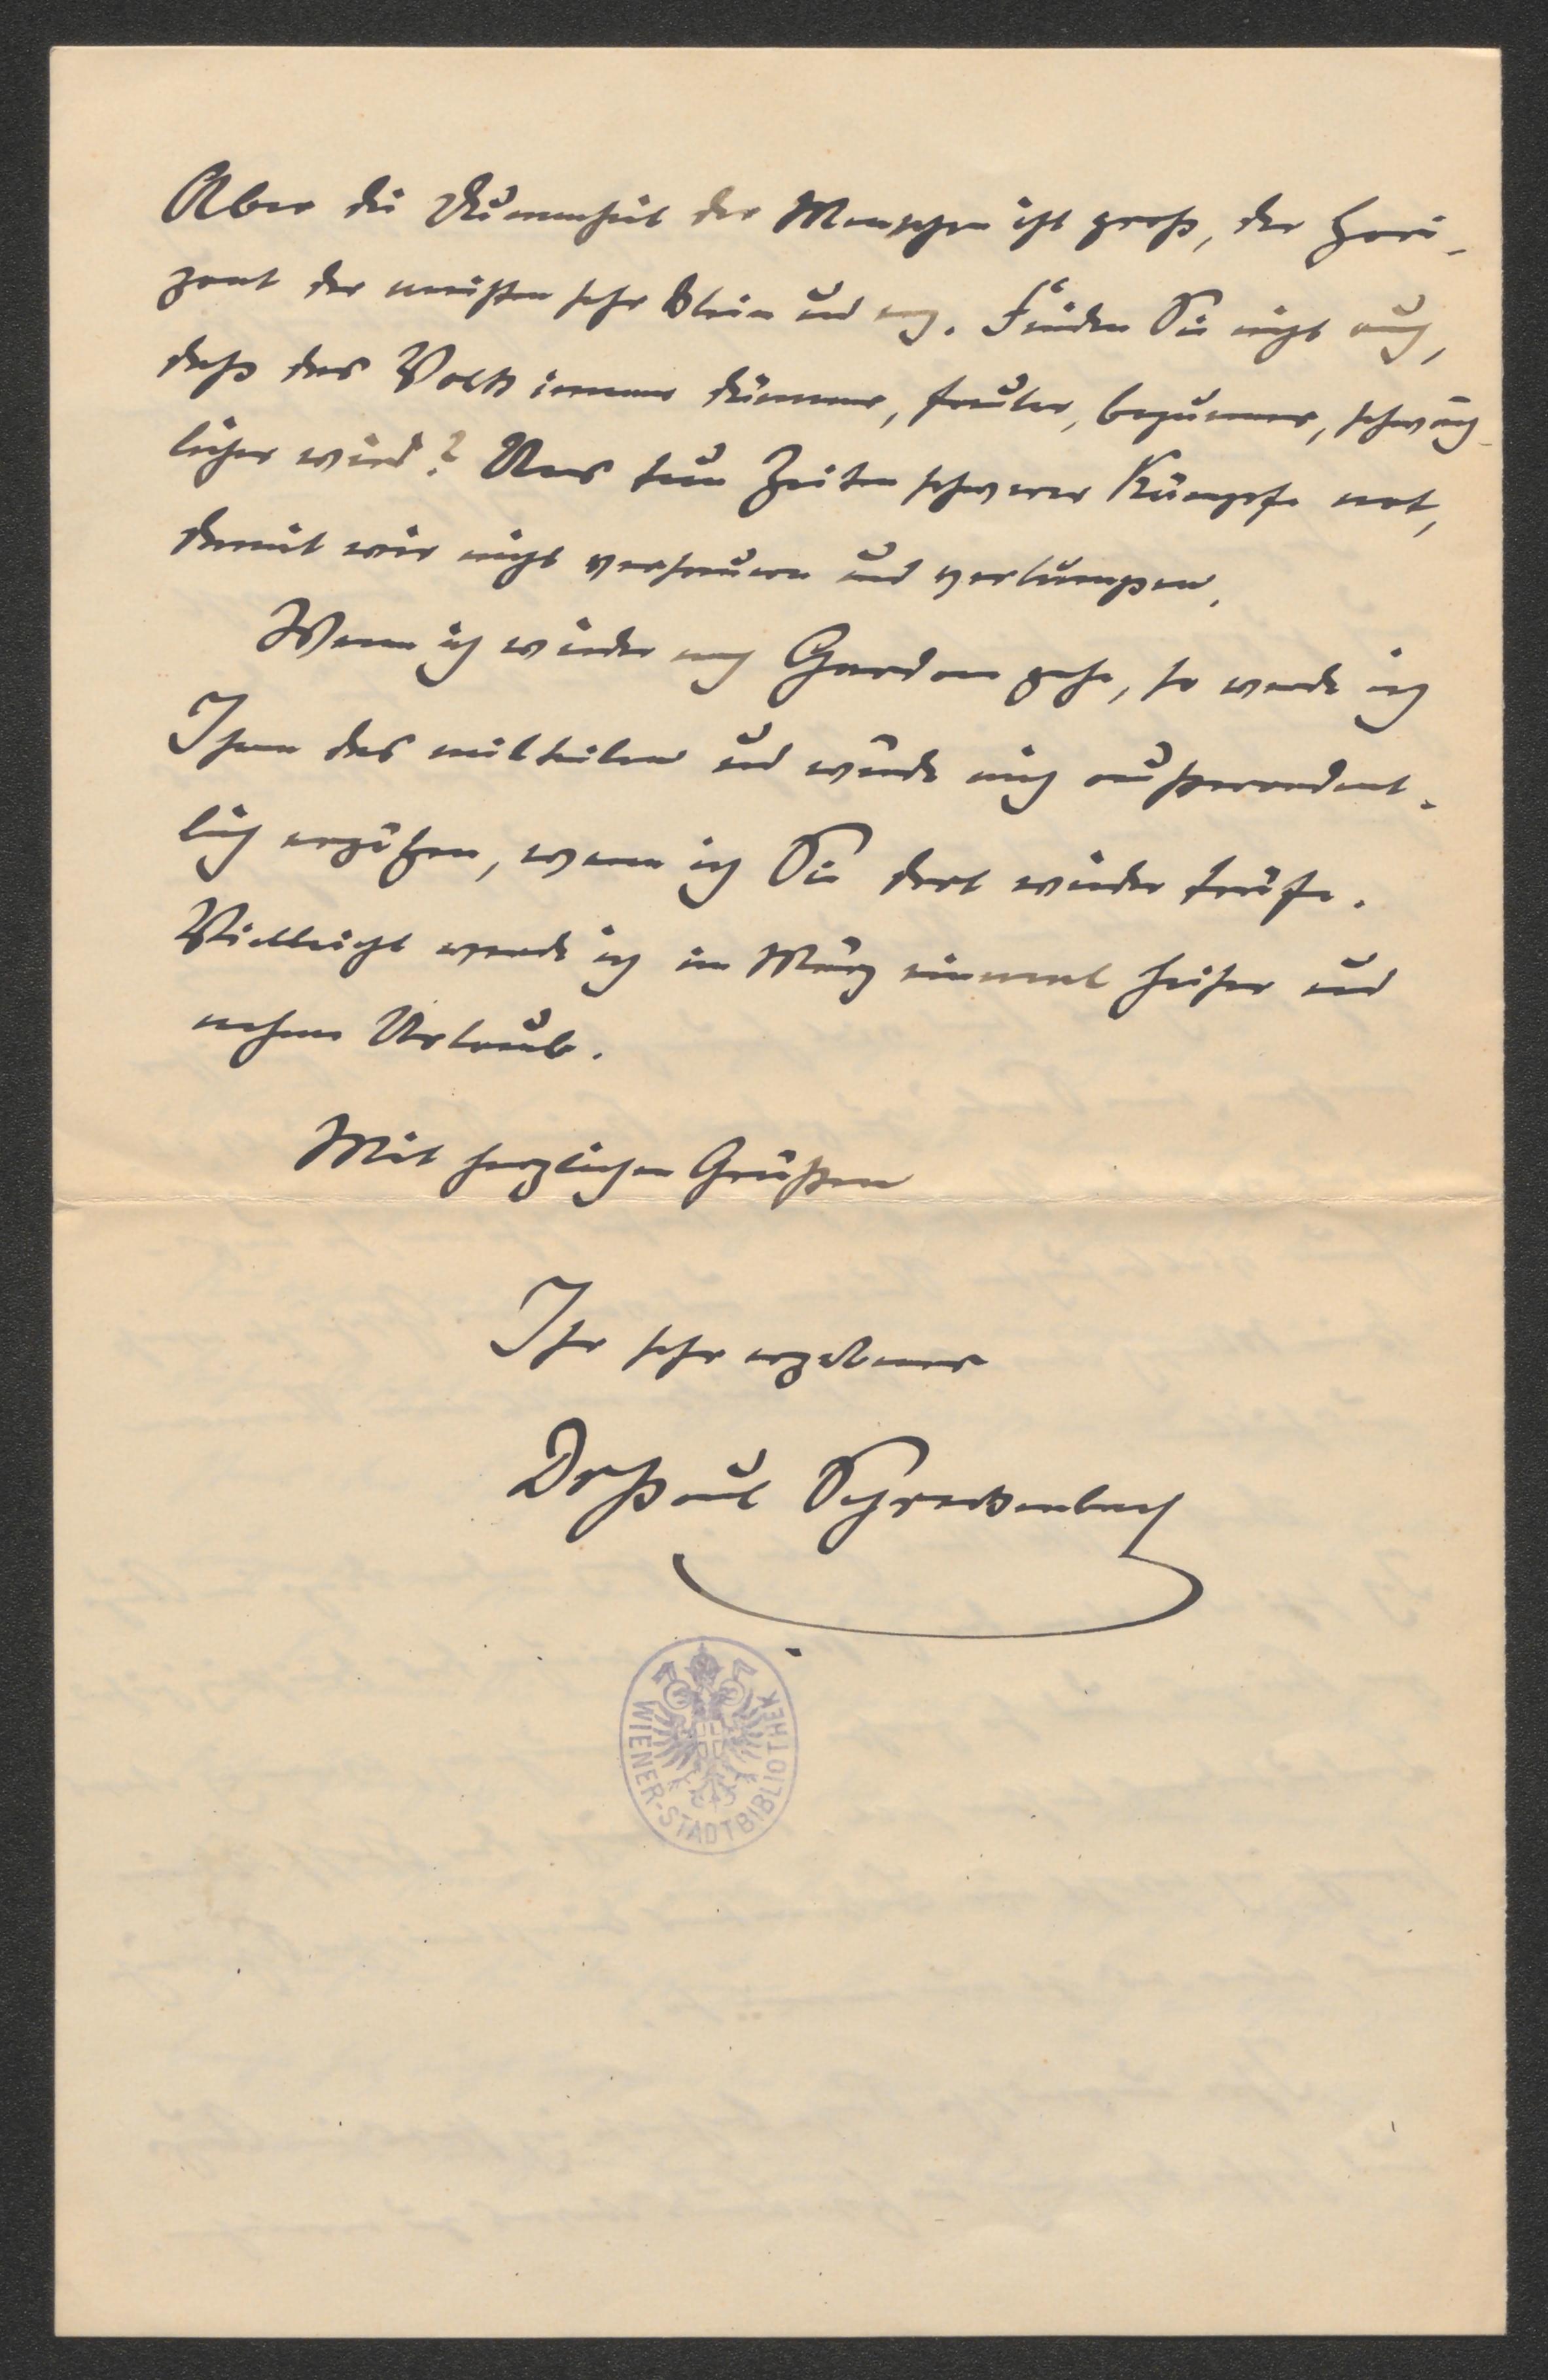 Aber die Dummheit der Menschen ist groß, der Hori-
zont der meisten sehr klein und eng. Finden Sie nicht auch,
daß das Volk immer dümmer, fauler, bequemer, schwäch-
licher wird? Uns tun Zeiten schwerer Kämpfe not,
damit wir nicht versauern und verlumpen.
Wenn ich wieder nach Gardone gehe, so werde ich
Ihnen das mitteilen und würde mich außerordent-
lich ergötzen, wenn ich Sie dort wieder träfe.
Vielleicht werde ich im März einmal heiser und
nehme Urlaub.
Mit herzlichen Grüßen
Ihr sehr ergebener
Dr Paul Schreckenbach
WIENER-STADTBIBLIOTHEK